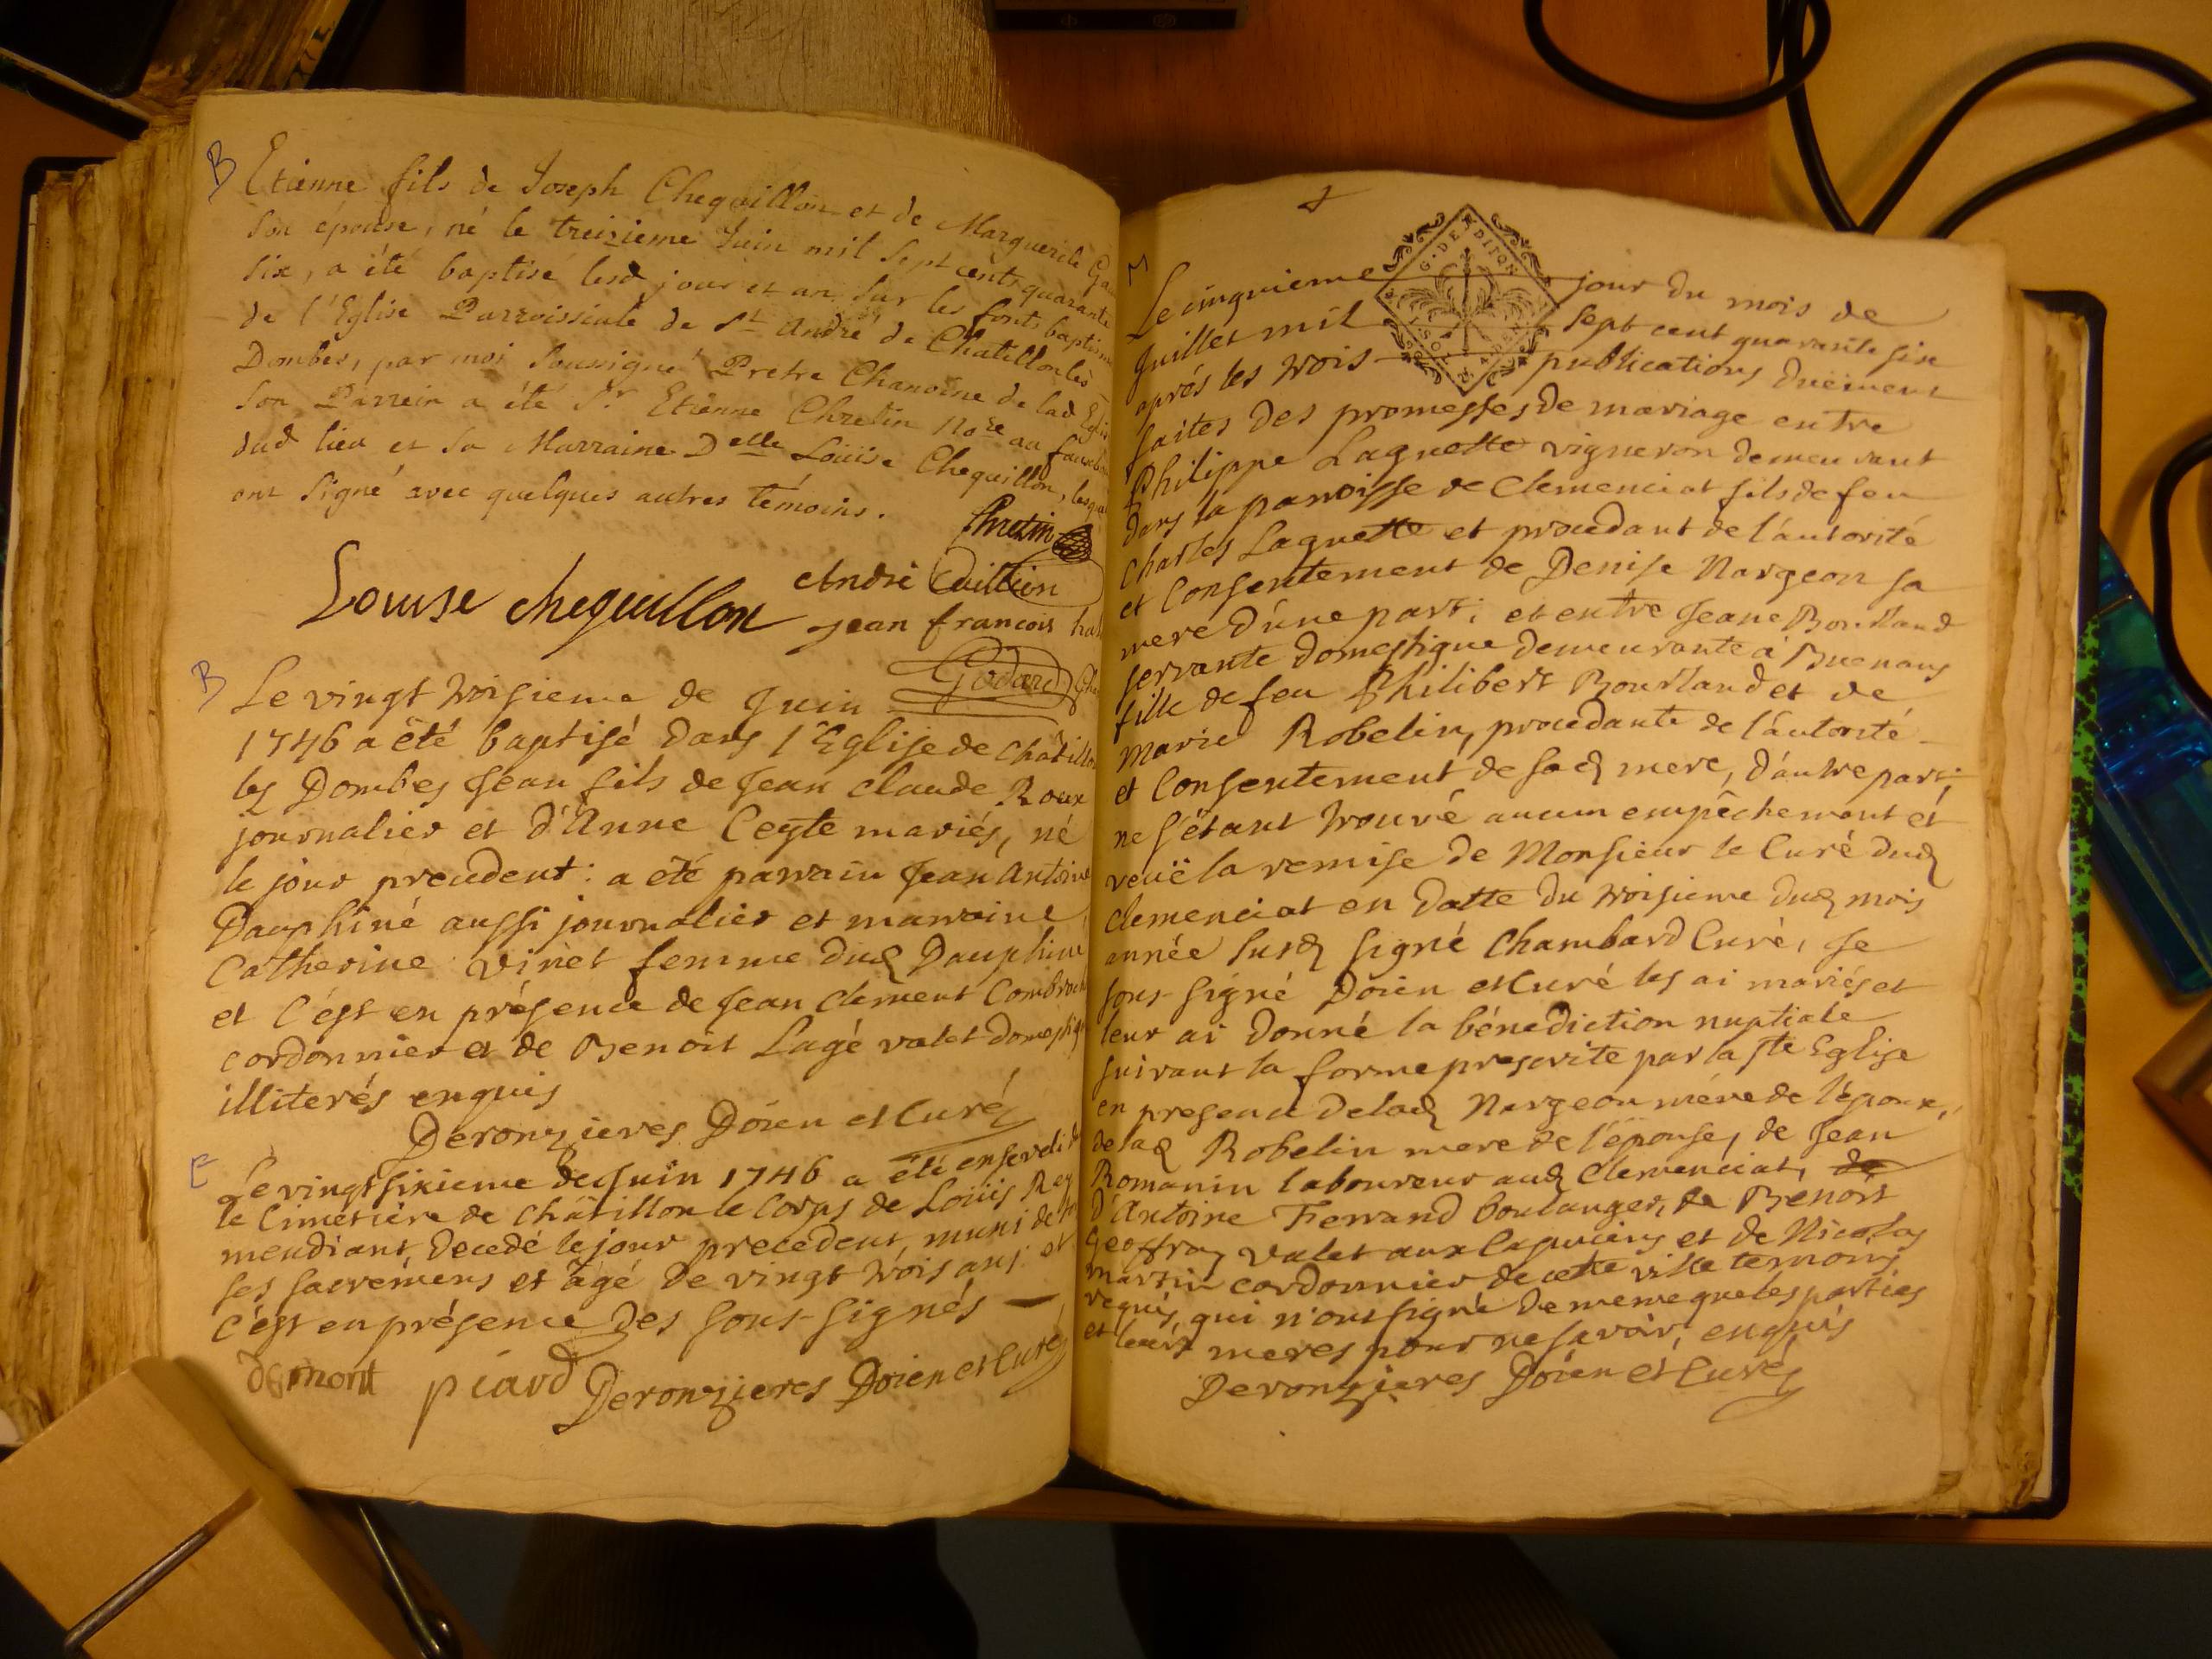 B
Etienne fils de Joseph Chequillon et de Marguerite
son épouse, né le treizieme Juin mil sept cents quarante
six, a été baptisé lesd jour et an sur les fonts
de l'Eglise Parroissiale de St André de Chatillon lès
Dombes, par moi soussigné Pretre Chanoine de lad
son Parrein a été Sr Etienne Chretin Nore au
dud lieu et sa Marraine Delle Loüise Chequillon,
ont signé avec quelques autres témoins.
Chretin
Louise chequillon André
jean francois
B
Godard
Le vingt troisieme de Juin
1746 a été baptisé dans l'Eglise de Châtillon
les Dombes Jean fils de Jean Claude Roux
journalier et d'Anne Ceyte mariés, né
le jour precedent: a été parrain Jean Antoine
Dauphiné aussi journalier et marraine
Catherine vinet femme dud Dauphiné
et c'est en présence de Jean Clement
cordonnier et de Benoit Lagé valet
illiterés enquis
Deronzieres Doien et Curé
E
Le vingt sixieme de Juin 1746 a été enseveli
le Cimétière de Châtillon le corps de Loüis Rey
mendiant, decedé le jour precedent, muni de
ses sacremens et âgé de vingt trois ans: et
c'est en présence des sous-signés
demont piard Deronzieres Doien et Curé
M
G. DE DIJON
Le cinquieme jour du mois de
Juillet mil sept cent quarante six
aprés les trois publications düement
faites des promesses de mariage entre
Philippe Laguette vigneron demeurant
dans la paroisse de Clemenciat fils de feu
Charles Laguette et procedant de l'autorité
et consentement de Denise Nargeon sa
mere d'une part; et entre Jeane Bourland
servante domestique demeurante à Buenans
fille de feu Philibert Bourland et de
Marie Robelin, procedante de l'autorité
et consentement de sad mere, d'autre part;
ne s'étant trouvé aucun empêchement et
veüe la remise de Monsieur le Curé dud
Clemenciat en datte du troisieme dud mois
année susd signé Chambard Curé, Je
sous-signé Doien et Curé les ai mariés et
leur ai donné la bénediction nuptiale
suivant la forme prescrite par la ste Eglise
en presence de lad Nargeon mére de l'époux,
de lad Robelin mere de l'épouse, de Jean
Romanin laboureur aud Clemenciat,
d'Antoine Ferrand boulanger, de Bénoit
Geoffray valet aux Capucins et de Nicolas
Martin cordonnier de cette ville temoins
requis, qui n'ont signé de meme que les parties
et leurs meres pour ne savoir, enquis
Deronzieres Doien et Curé